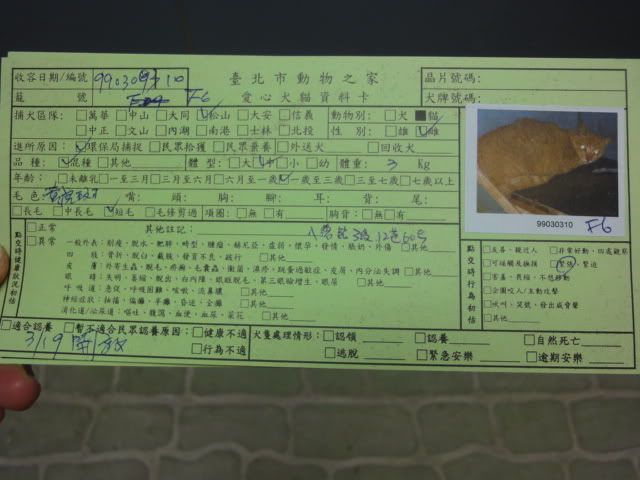 收容日期/編號 99030310 臺北市動物之家 晶片號碼:
籠號 F6 愛心犬貓資料卡 犬牌號碼:
捕犬區隊: □萬華 □中山 □大同 ☑松山 □大安 □信義 動物別: □犬 ■貓
□中正 □文山 □內湖 □南港 □士林 □北投 性別: □雄 ☑雌
進所原因: ☑環保局捕捉 □民眾拾獲 □民眾棄養 □外送犬 □回收犬
品種: ☑混種 □其他 體型: □大 ☑中 □小 □幼 體重: 3 Kg
年齡: □未離乳 □一至三月 □三至六月 □六月至一歲 ☑一歲至三歲 □三至七歲 □七歲以上
毛色: 嘴: 頭: 胸: 腳: 耳: 背: 尾:
□長毛 □中長毛 ☑短毛 □毛修剪過 項圈: □無 □有 胸背: □無 □有
99030310 F6
點交時健康狀況初估
□正常 其他註記:
□異常 一般外表: 削瘦、脫水、肥胖、畸型、腫瘤、赫尼亞、虛弱、懷孕、發情、脹奶、外傷 □其他
四肢: 骨折、脫臼、截肢、發育不良、跛行 □其他
皮膚: 外寄生蟲、脫毛、疥癬、毛囊蟲、黴菌、濕疹、跳蚤過敏症、皮屑、內分泌失調 □其他
眼睛: 失明、萎縮、脫出、白內障、眼瞼脫毛、第三眼瞼增生、眼屎 □其他
呼吸道: 急促、呼吸困難、咳嗽、流鼻膿 □其他
神經症狀: 抽搐、偏癱、半癱、昏迷、全癱 □其他
消化道/泌尿道: 嘔吐、腹瀉、血便、血尿、尿花 □其他
點交時行為初估
□友善、親近人 □非常好動、四處觀察
□可碰觸及撫摸 ☑緊張、緊迫
□害羞、畏縮、不想移動
□企圖咬人/主動攻擊
□吠叫、哭號、發出威脅聲
□其他
□適合認養 □暫不適合民眾認養原因: □健康不適 犬隻處理情形: □認領 □認養 □自然死亡
3/19 開放 □行為不適 □逃脫 □緊急安樂 □逾期安樂